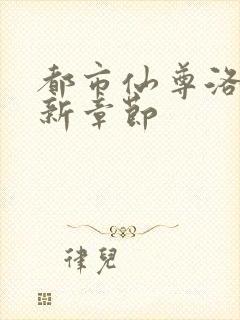 都市仙尊洛
新章节
律儿